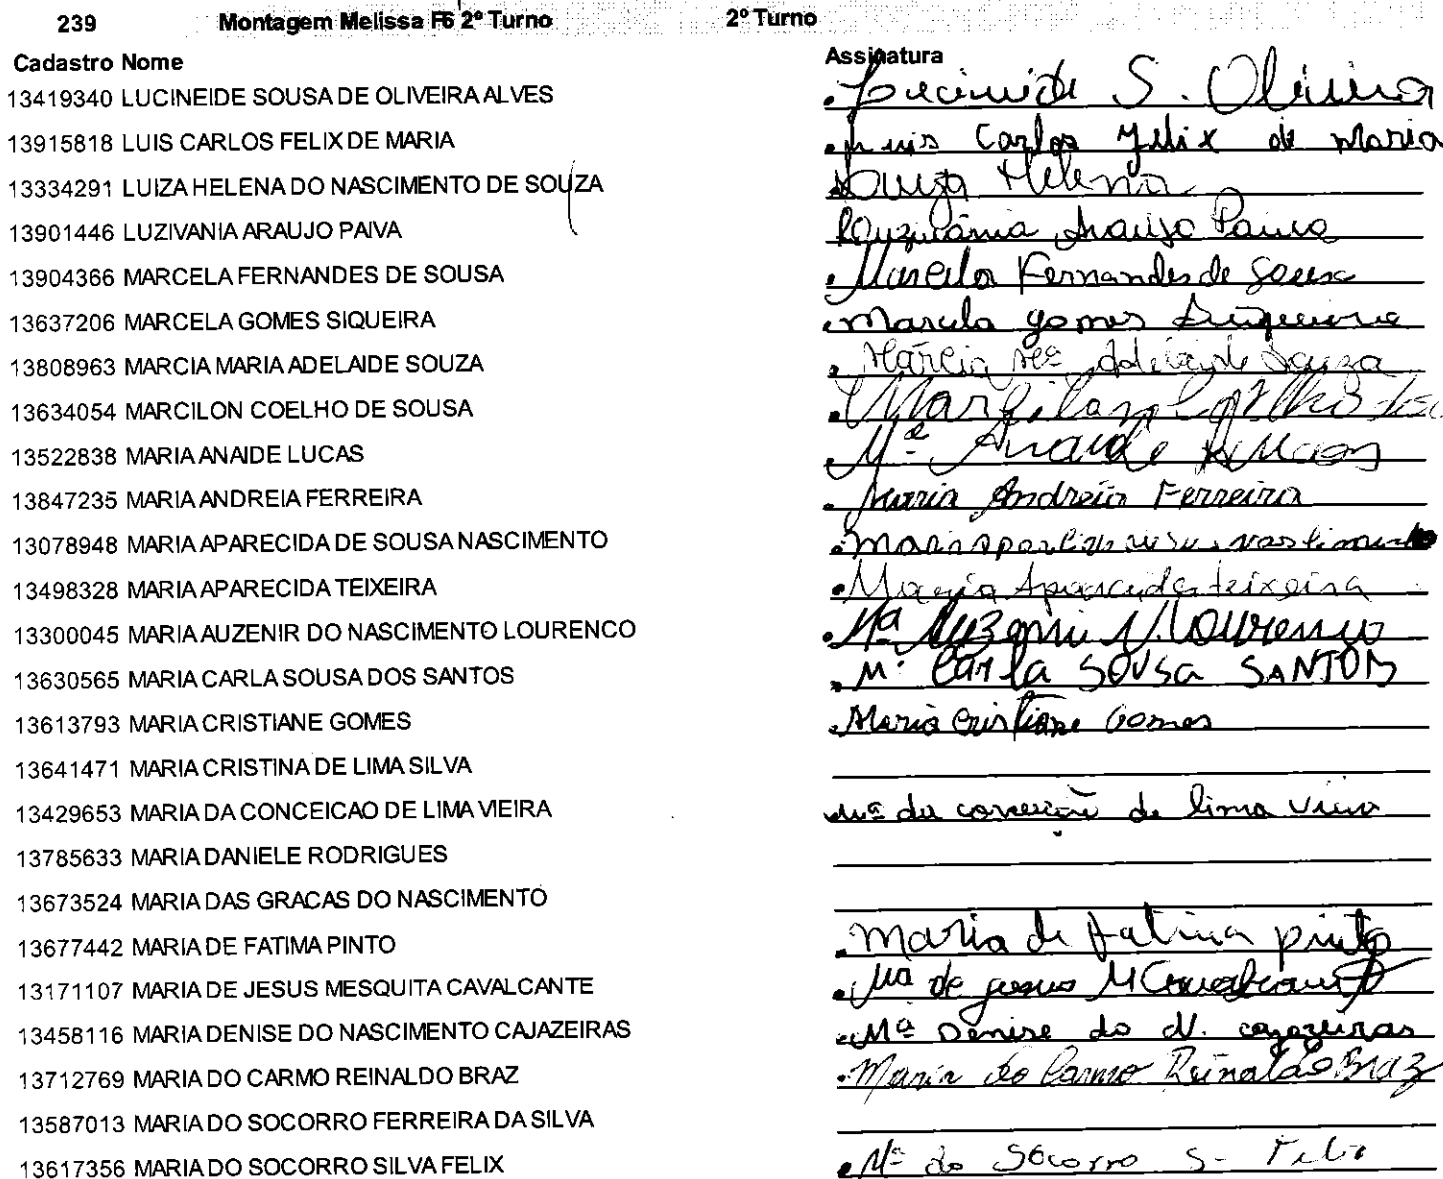 239 Montagem Melissa F6 2º Turno 2º Turno
Cadastro Nome Assinatura
13419340 LUCINEIDE SOUSA DE OLIVEIRA ALVES Lucineide S. Oliveira
13915818 LUIS CARLOS FELIX DE MARIA Luis Carlos Felix de Maria
13334291 LUIZA HELENA DO NASCIMENTO DE SOUZA Luiza Helena
13901446 LUZIVANIA ARAUJO PAIVA Luzivânia Araujo Paiva
13904366 MARCELA FERNANDES DE SOUSA Marcela Fernandes de Sousa
13637206 MARCELA GOMES SIQUEIRA Marcela gomes Siqueira
13808963 MARCIA MARIA ADELAIDE SOUZA Márcia Mª Adelaide Souza
13634054 MARCILON COELHO DE SOUSA Marcilon Coelho
13522838 MARIA ANAIDE LUCAS Mª Anaide Lucas
13847235 MARIA ANDREIA FERREIRA Maria Andreia Ferreira
13078948 MARIA APARECIDA DE SOUSA NASCIMENTO
13498328 MARIA APARECIDA TEIXEIRA Maria Aparecida teixeira
13300045 MARIA AUZENIR DO NASCIMENTO LOURENCO Mª Auzeni N. Lourenço
13630565 MARIA CARLA SOUSA DOS SANTOS Mª Carla SOUSA SANTOS
13613793 MARIA CRISTIANE GOMES Maria Cristiane Gomes
13641471 MARIA CRISTINA DE LIMA SILVA
13429653 MARIA DA CONCEICAO DE LIMA VIEIRA Mª da conceição de lima
13785633 MARIA DANIELE RODRIGUES
13673524 MARIA DAS GRACAS DO NASCIMENTO
13677442 MARIA DE FATIMA PINTO maria de fatima pinto
13171107 MARIA DE JESUS MESQUITA CAVALCANTE Mª de jesus M Cavalcante
13458116 MARIA DENISE DO NASCIMENTO CAJAZEIRAS Mª Denise do N. cajazeiras
13712769 MARIA DO CARMO REINALDO BRAZ Maria do Carmo Reinaldo Braz
13587013 MARIA DO SOCORRO FERREIRA DA SILVA
13617356 MARIA DO SOCORRO SILVA FELIX Mª do Socorro S- Felix